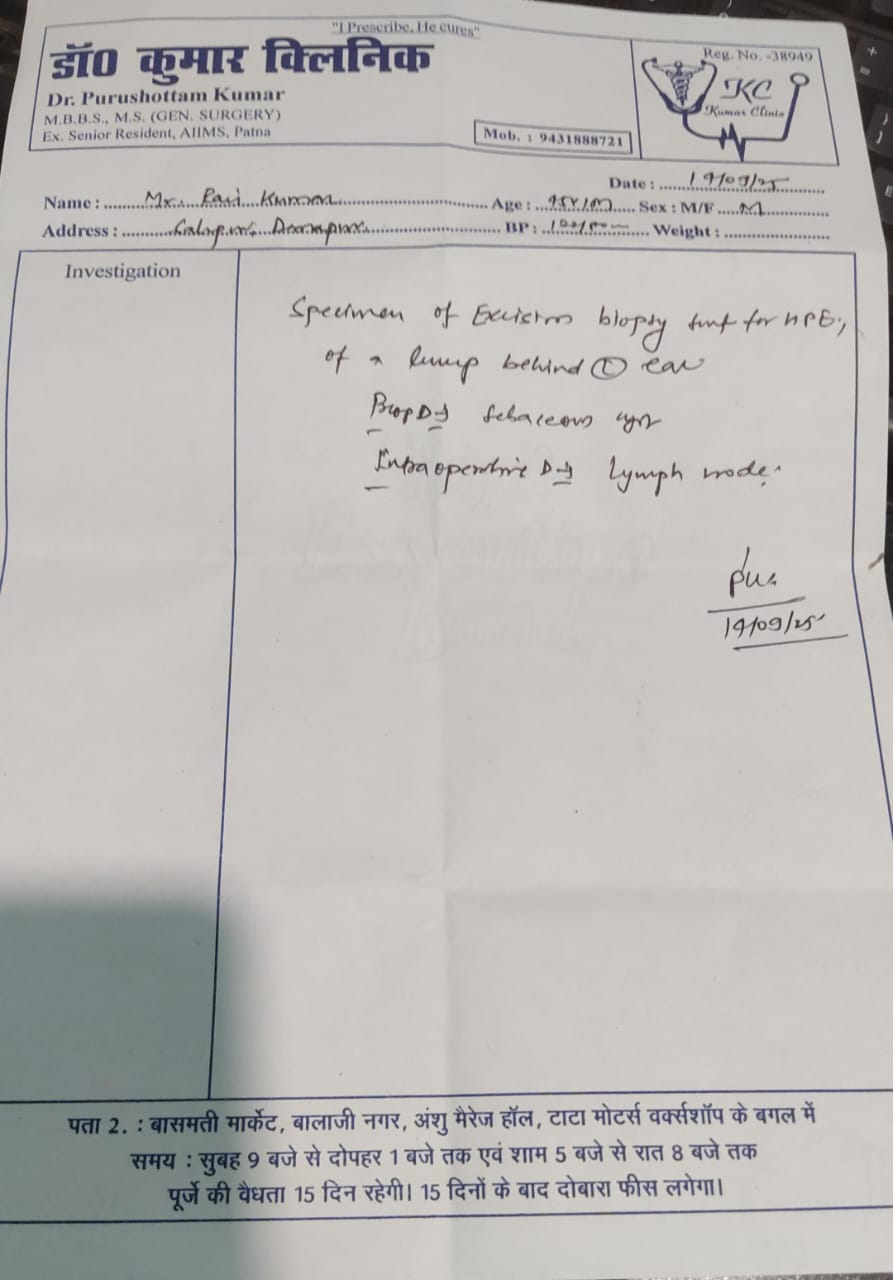 "I Prescribe, He cures"
डॉ० कुमार क्लिनिक
Dr. Purushottam Kumar
M.B.B.S., M.S. (GEN. SURGERY)
Ex. Senior Resident, AIIMS, Patna
Mob. : 9431888721
Reg. No. -38949
KC
Kumar Clinic
Date : 19/09/25
Name : Mr. Ravi Kumar Age : Sex : M/F M
Address : BP : Weight :
Investigation
Specimen of Excision biopsy sent for HPE,
of a lump behind ear
PreopD-s Sebaceous cyst
Intraoperative D-s Lymph node.
19/09/25
पता 2. : बासमती मार्केट, बालाजी नगर, अंशु मैरेज हॉल, टाटा मोटर्स वर्क्सशॉप के बगल में
समय : सुबह 9 बजे से दोपहर 1 बजे तक एवं शाम 5 बजे से रात 8 बजे तक
पूर्जे की वैधता 15 दिन रहेगी। 15 दिनों के बाद दोबारा फीस लगेगा।